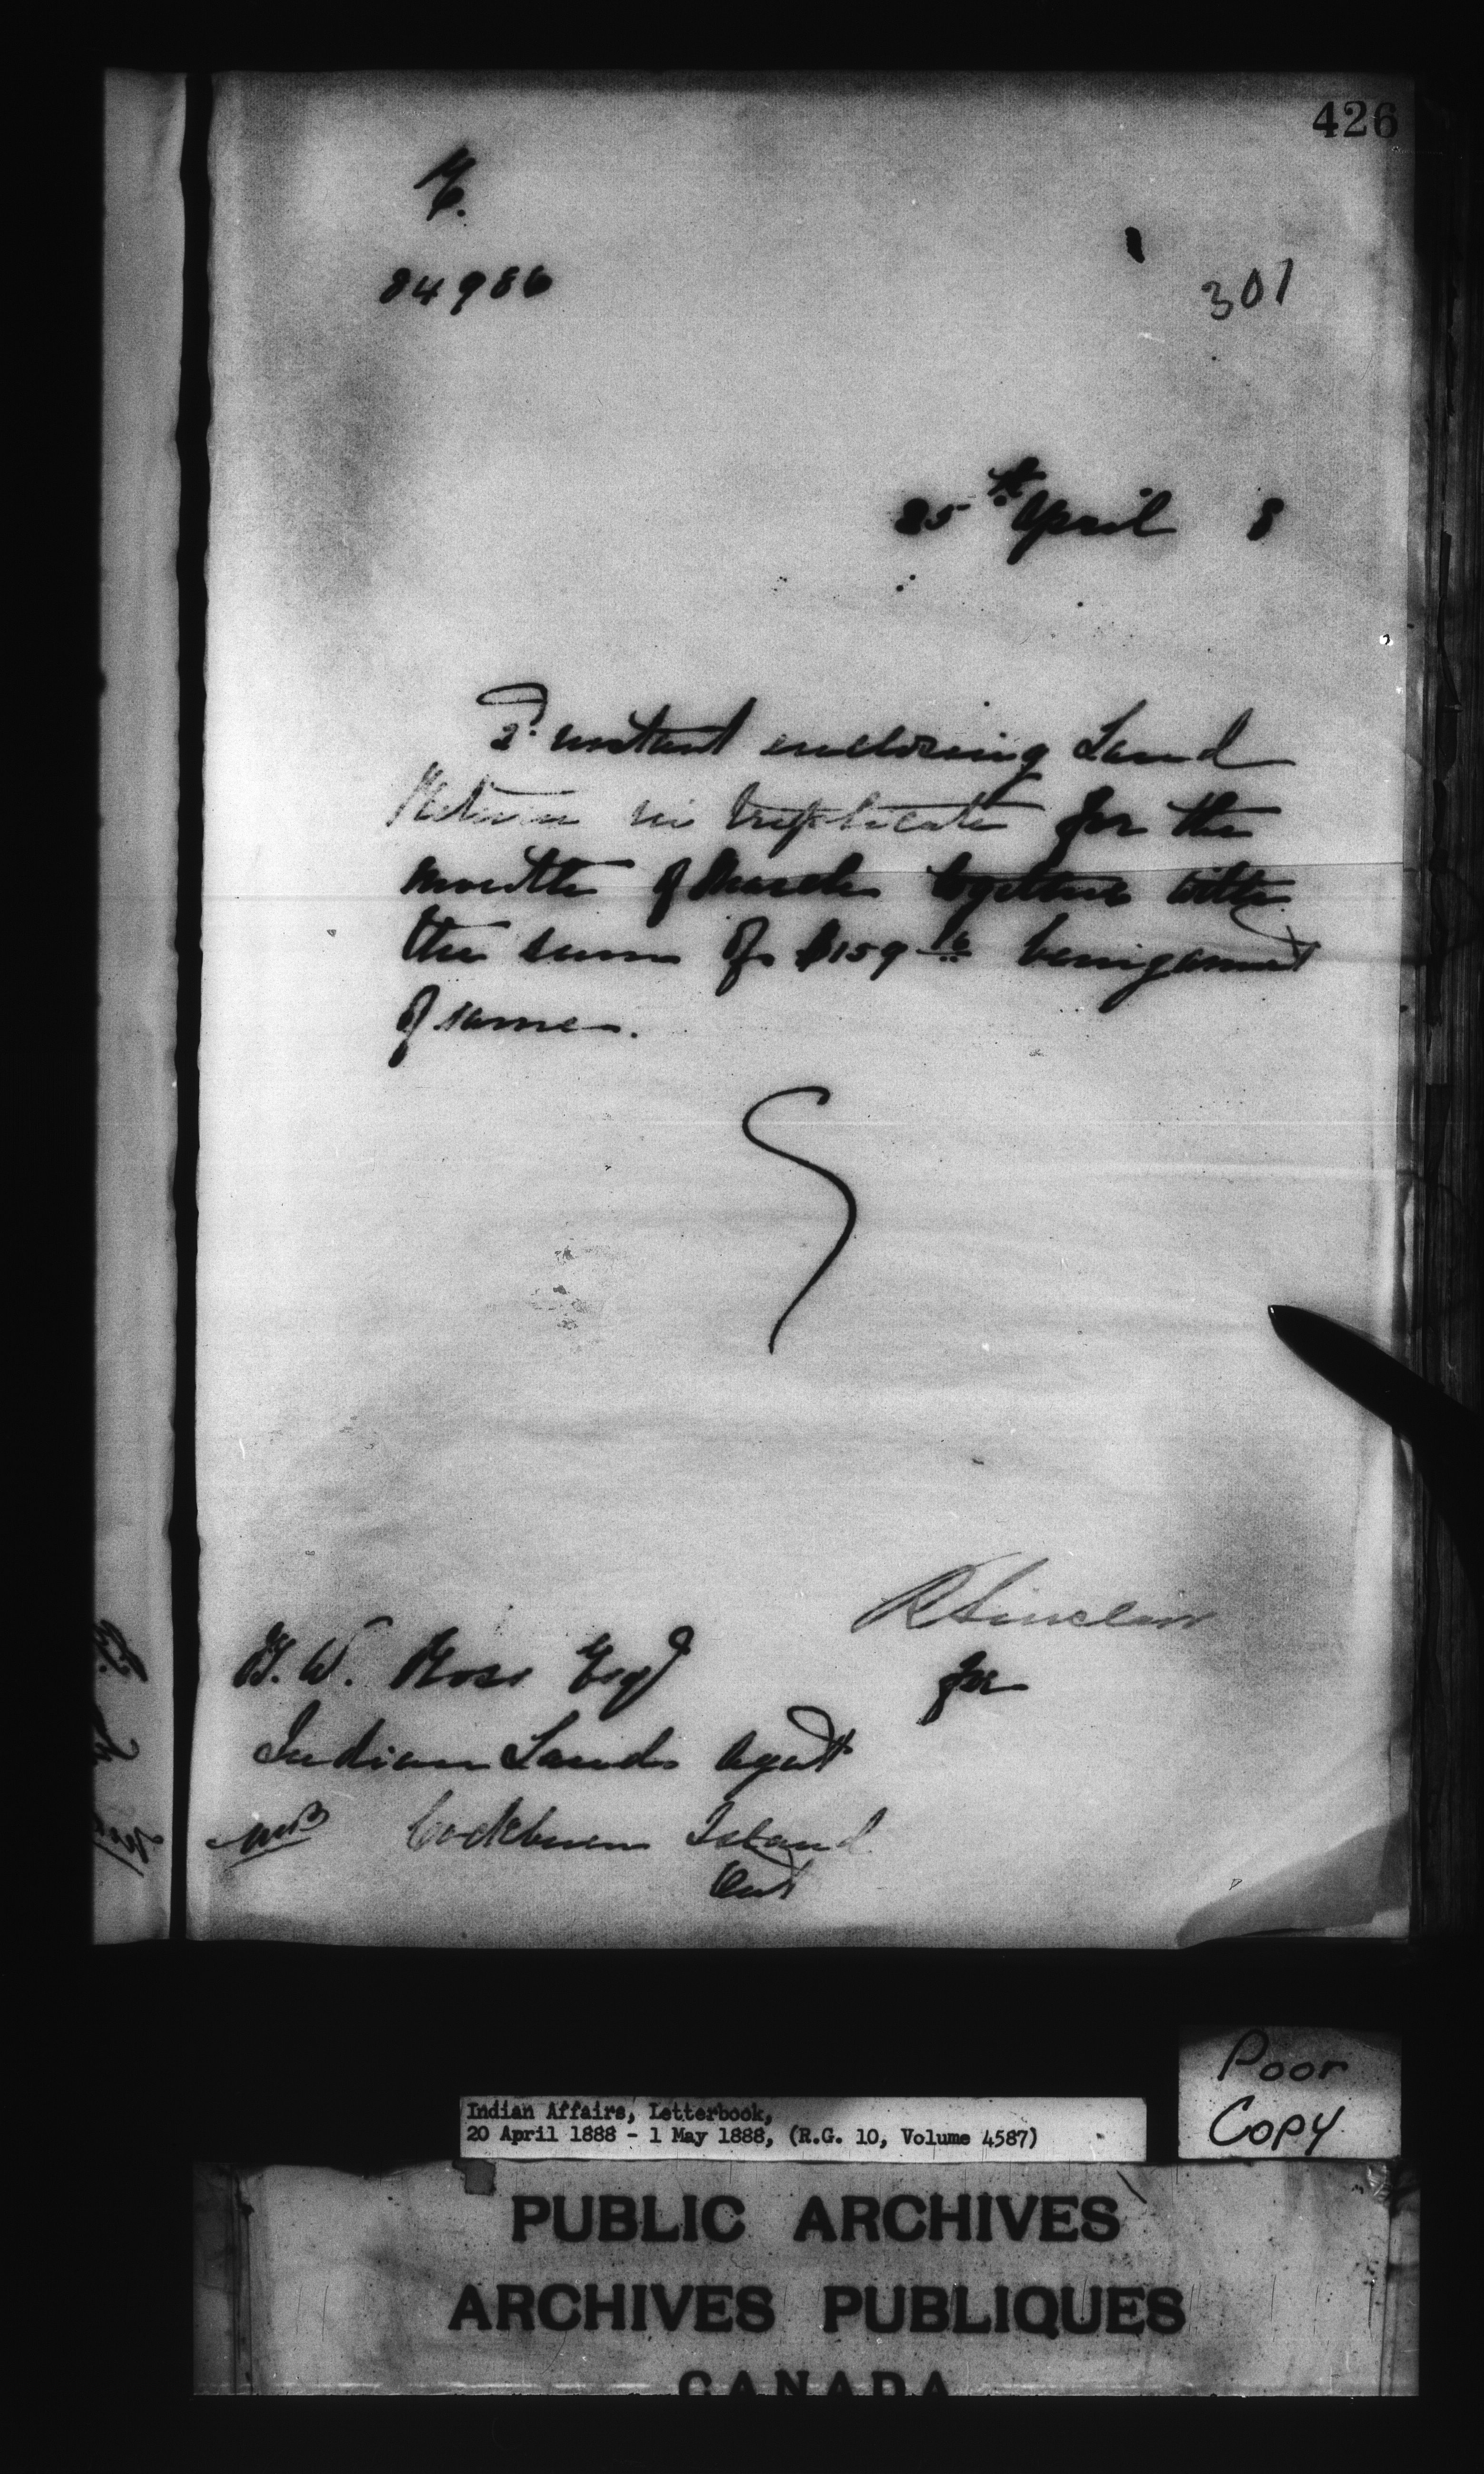 426
84986
301
25th April 8
2d instant enclosing Land
Return in triplicate for the
month of March together with
the sum of $159.16 being amount
of same.
R Sinclair
for
W. Ross Esq
Indian Lands Agent
Cockburn Island
Ont
Poor
Copy
Indian Affairs, Letterbook,
20 April 1888 - 1 May 1888, (R.G. 10, Volume 4587)
PUBLIC ARCHIVES
ARCHIVES PUBLIQUES
CANADA